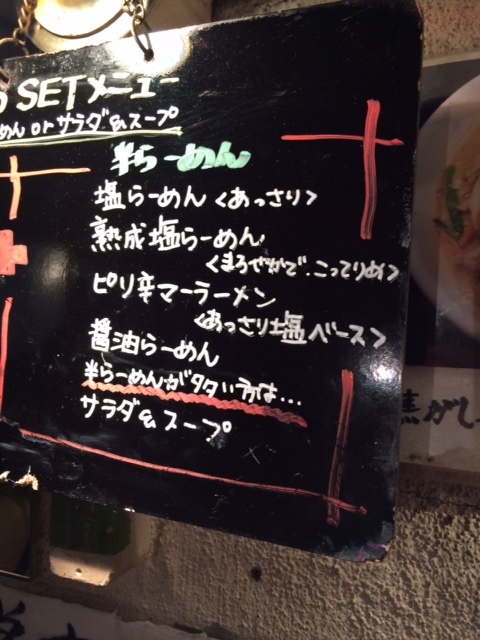 SETメニュー
めん or サラダ&スープ
半らーめん
塩らーめん <あっさり>
熟成塩らーめん
<まろやかで、こってりめ>
ピリ辛マーラーメン
<あっさり塩ベース>
醤油らーめん
半らーめんが多い方は...
サラダ&スープ
焦がし